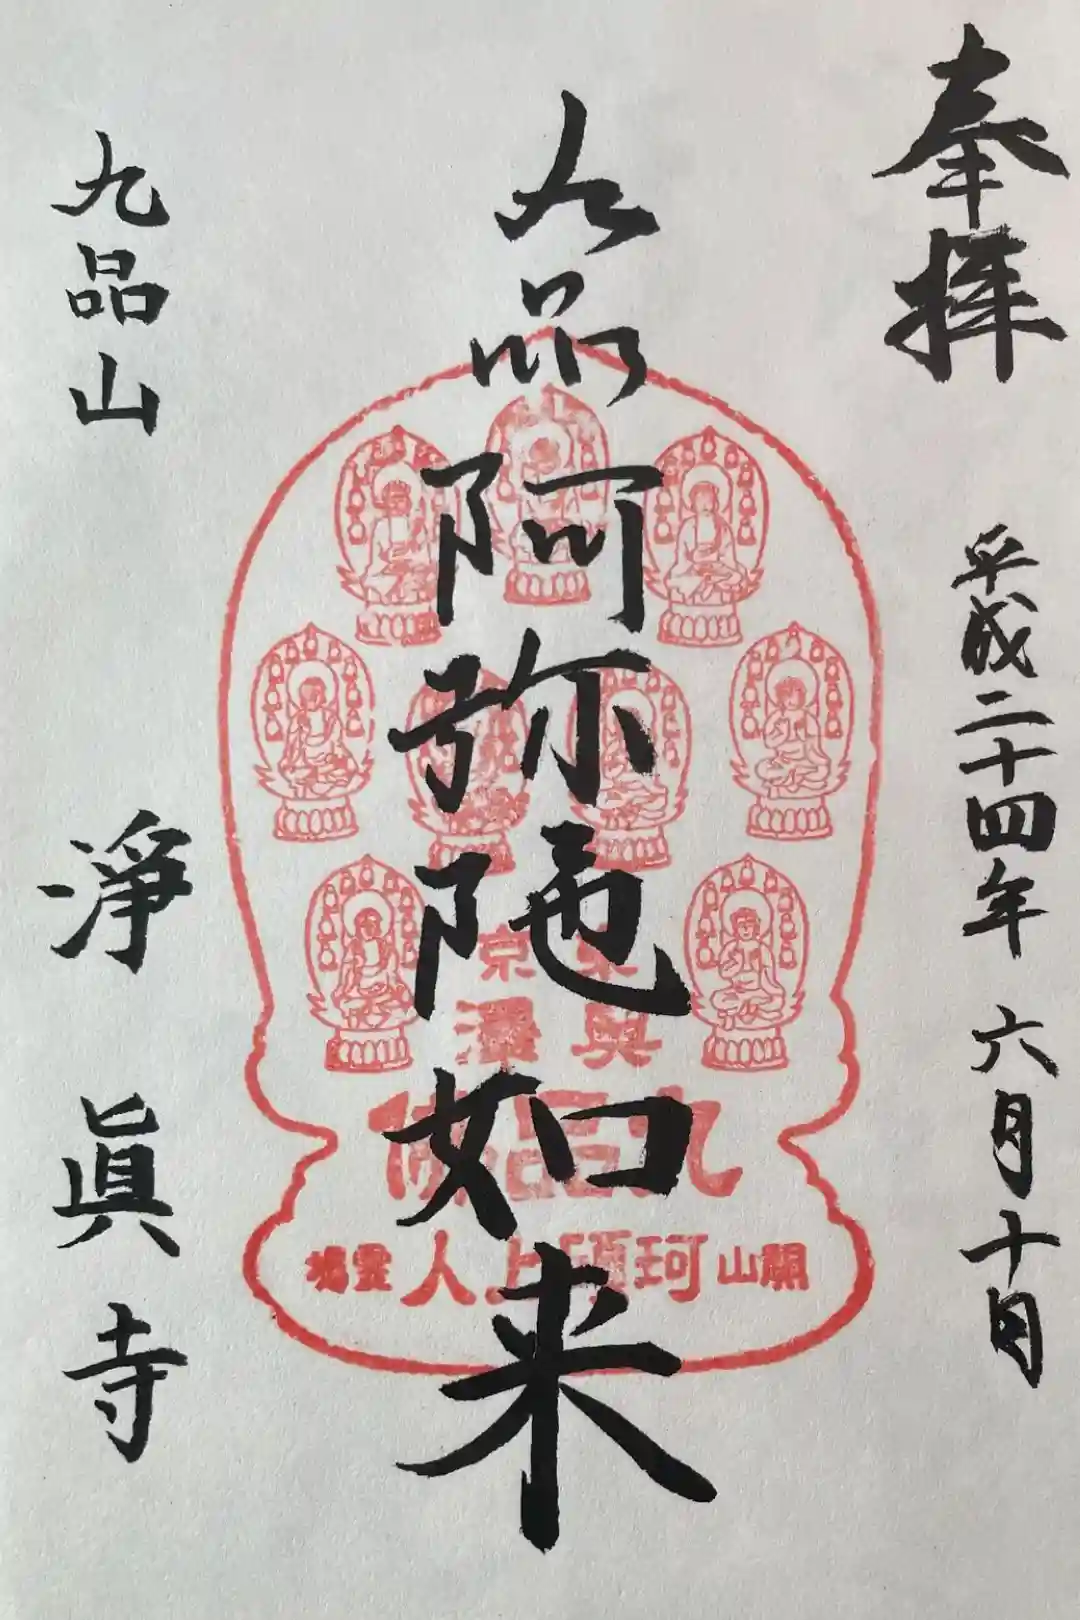 奉拝
平成二十四年 六月十日
九品阿弥陀如来
九品山
淨眞寺
東京
奥澤
九品佛
開山珂碩上人霊場